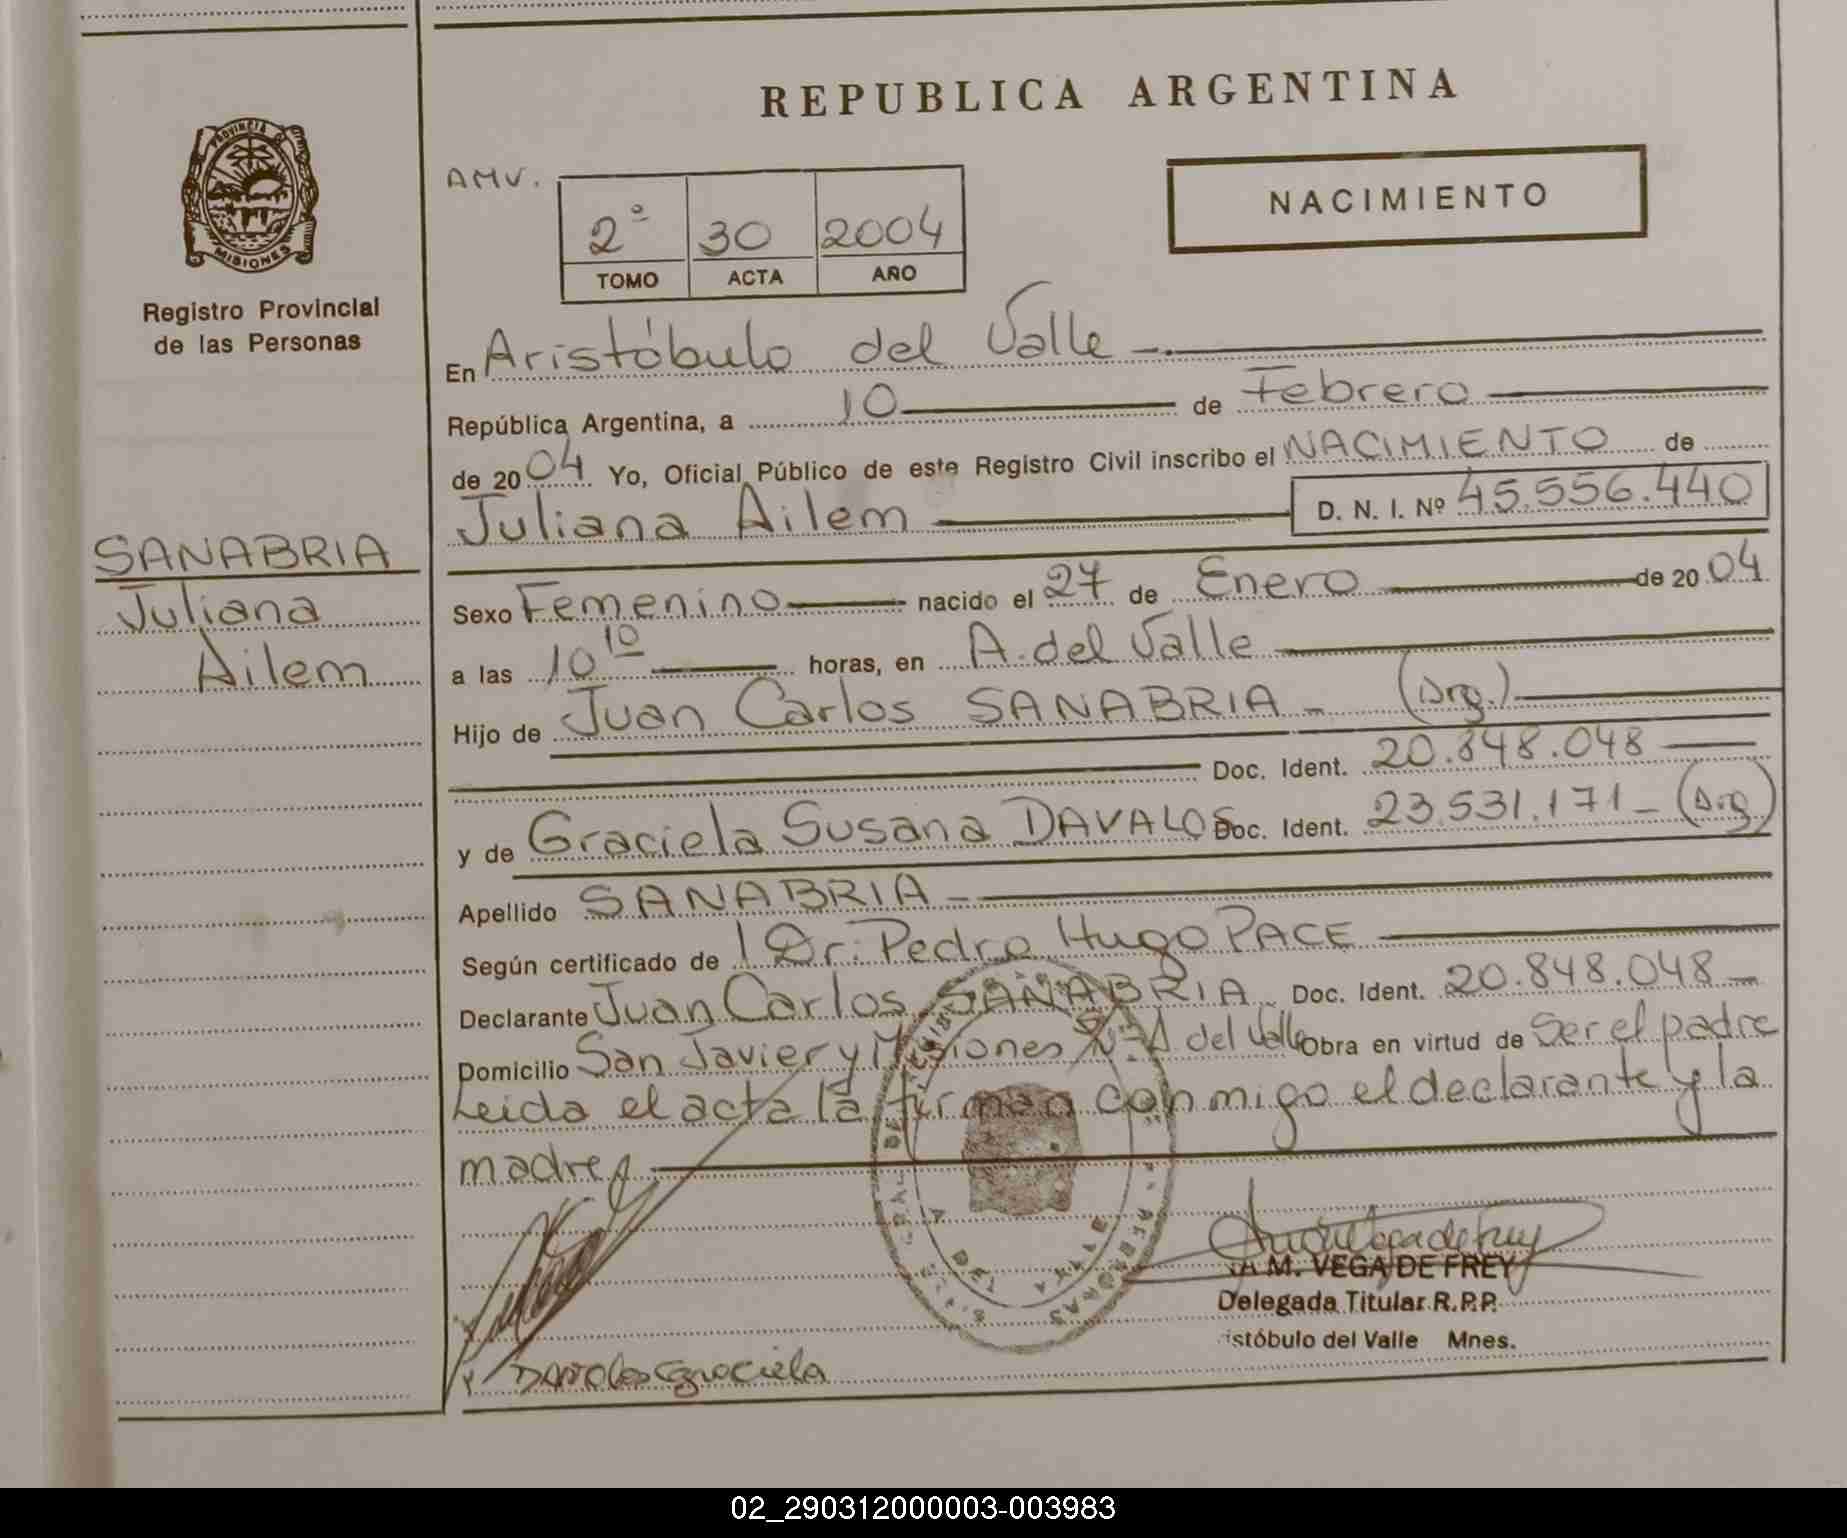 REPUBLICA ARGENTINA
PROVINCIA DE
MISIONES
Registro Provincial
de las Personas
AMV.
2º 30 2004
TOMO ACTA AÑO
NACIMIENTO
En Aristóbulo del Valle -.
República Argentina, a 10 de Febrero
de 2004 Yo, Oficial Público de este Registro Civil inscribo el NACIMIENTO de
Juliana Ailem D. N. I. Nº 45.556.440
SANABRIA
Juliana
Ailem
Sexo Femenino nacido el 27 de Enero de 2004
a las 10 10 horas, en A. del Valle
Hijo de Juan Carlos SANABRIA - (Arg.)
Doc. Ident. 20.848.048
y de Graciela Susana DAVALOS Doc. Ident. 23.531.171 - (Arg)
Apellido SANABRIA -
Según certificado de Dr. Pedro Hugo PACE
Declarante Juan Carlos SANABRIA Doc. Ident. 20.848.048 -
Domicilio San Javier y Misiones A del Valle Obra en virtud de Ser el padre
Leida el acta la firman conmigo el declarante y la
madre
A. M. VEGA DE FREY
Delegada Titular R.P.P.
istóbulo del Valle Mnes.
Davalos Graciela
02_290312000003-003983